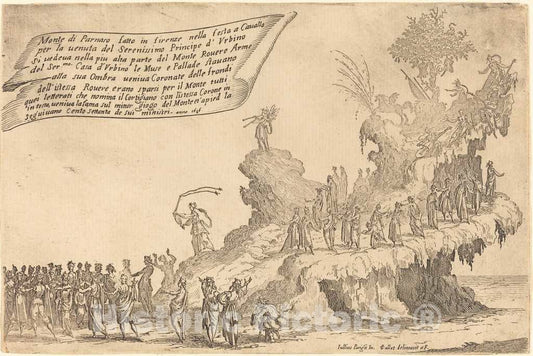 Monte di Parnaso fatto in firenze nella festa a Cavallo
per la venuta del Serenissimo Principe d'Urbino
Si vedeva nella piu alta parte del Monte Rovero Arme
del Ser.mo Casa d'Urbino le Muse e Pallade stavano
alla sua Ombra veniva Coronate delle frondi
dell'istessa Rovere erano sparsi per il Monte tutti
quei letterati che nomina il Cortigiano con l'istessa Corone in
testa, veniva la fama sul minor giogo del Monte et a pied la
seguivano Cento Settanta de sui ministri. anno 16
Historic Pictoric ®
Iullius Parigii In. Callot delineavit et F.